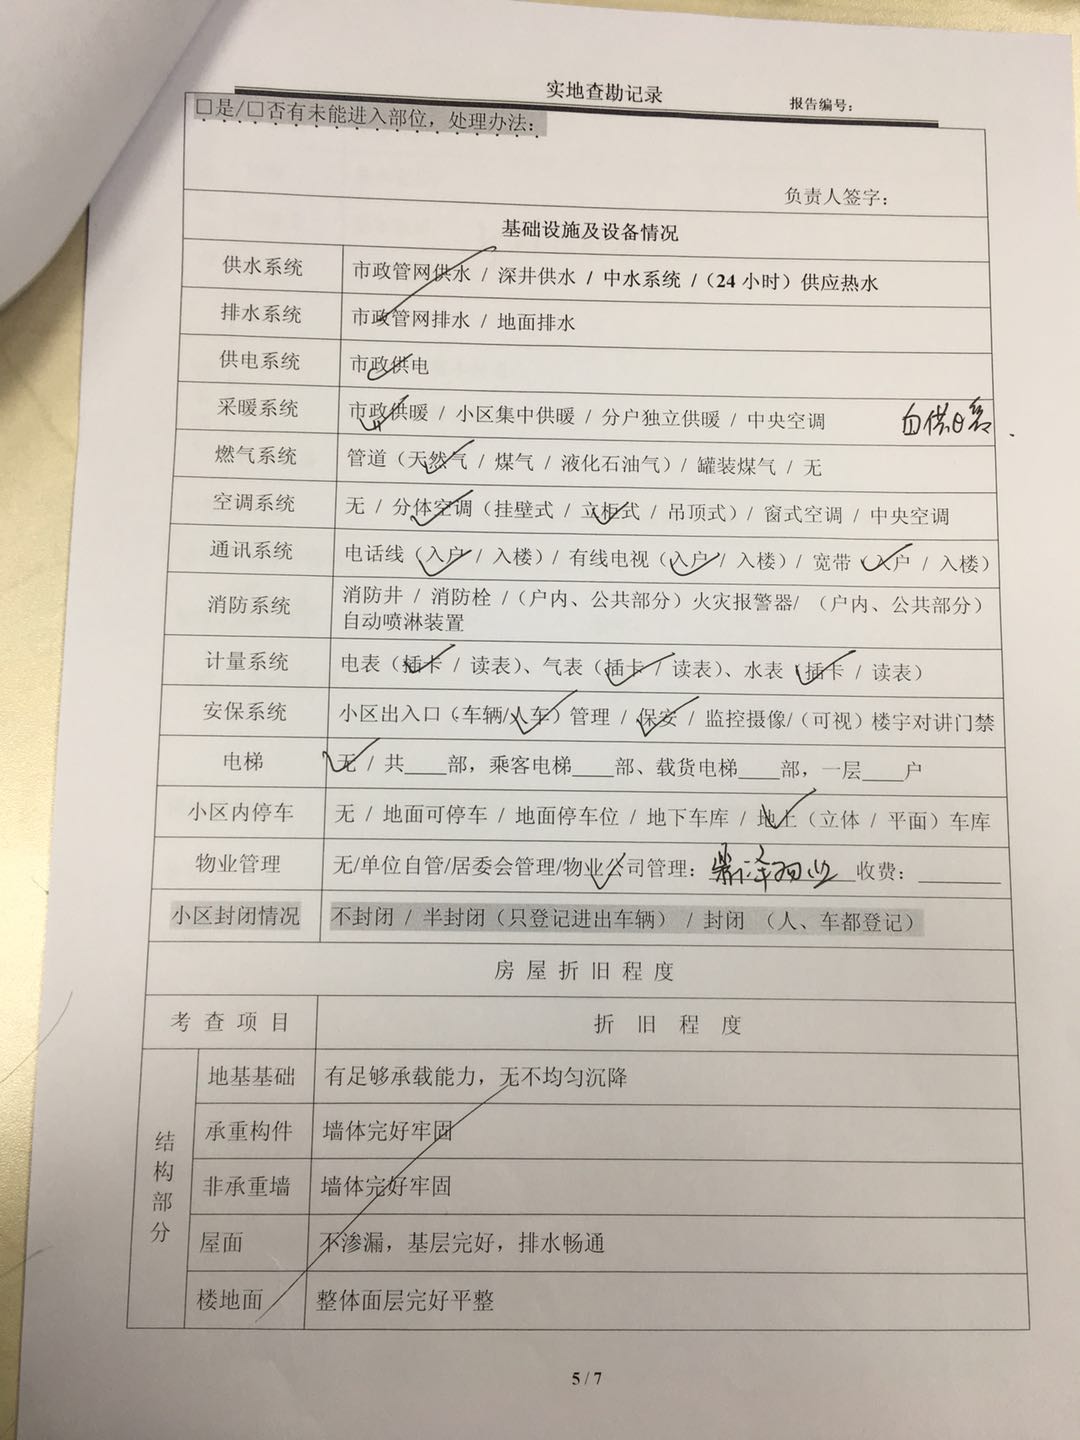 实地查勘记录
报告编号:
□是/□否有未能进入部位，处理办法:
负责人签字:
基础设施及设备情况
供水系统 市政管网供水 / 深井供水 / 中水系统 /（24 小时）供应热水
排水系统 市政管网排水 / 地面排水
供电系统 市政供电
采暖系统 市政供暖 / 小区集中供暖 / 分户独立供暖 / 中央空调 自供暖
燃气系统 管道（天然气 / 煤气 / 液化石油气）/ 罐装煤气 / 无
空调系统 无 / 分体空调（挂壁式 / 立柜式 / 吊顶式）/ 窗式空调 / 中央空调
通讯系统 电话线（入户 / 入楼）/ 有线电视（入户 / 入楼）/ 宽带（入户 / 入楼）
消防系统 消防井 / 消防栓 /（户内、公共部分）火灾报警器/ （户内、公共部分）
自动喷淋装置
计量系统 电表（插卡 / 读表）、气表（插卡 / 读表）、水表（插卡 / 读表）
安保系统 小区出入口（车辆/人车）管理 / 保安 / 监控摄像/（可视）楼宇对讲门禁
电梯 无 / 共____部，乘客电梯____部、载货电梯____部，一层____户
小区内停车 无 / 地面可停车 / 地面停车位 / 地下车库 / 地上（立体 / 平面）车库
物业管理 无/单位自管/居委会管理/物业公司管理: 鼎泽物业 收费: ________
小区封闭情况 不封闭 / 半封闭（只登记进出车辆） / 封闭 （人、车都登记）
房屋折旧程度
考查项目 折旧程度
结构部分
地基基础 有足够承载能力，无不均匀沉降
承重构件 墙体完好牢固
非承重墙 墙体完好牢固
屋面 不渗漏，基层完好，排水畅通
楼地面 整体面层完好平整
5 / 7